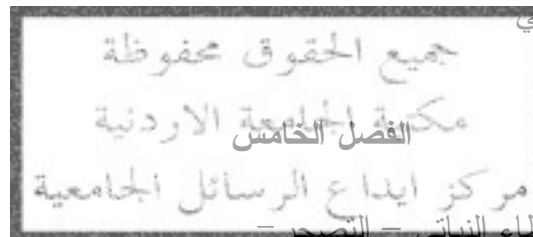 جميع الحقوق محفوظة
مكتبة الجامعة الاردنية
الفصل الخامس
مركز ايداع الرسائل الجامعية
النباتي – التصحر –